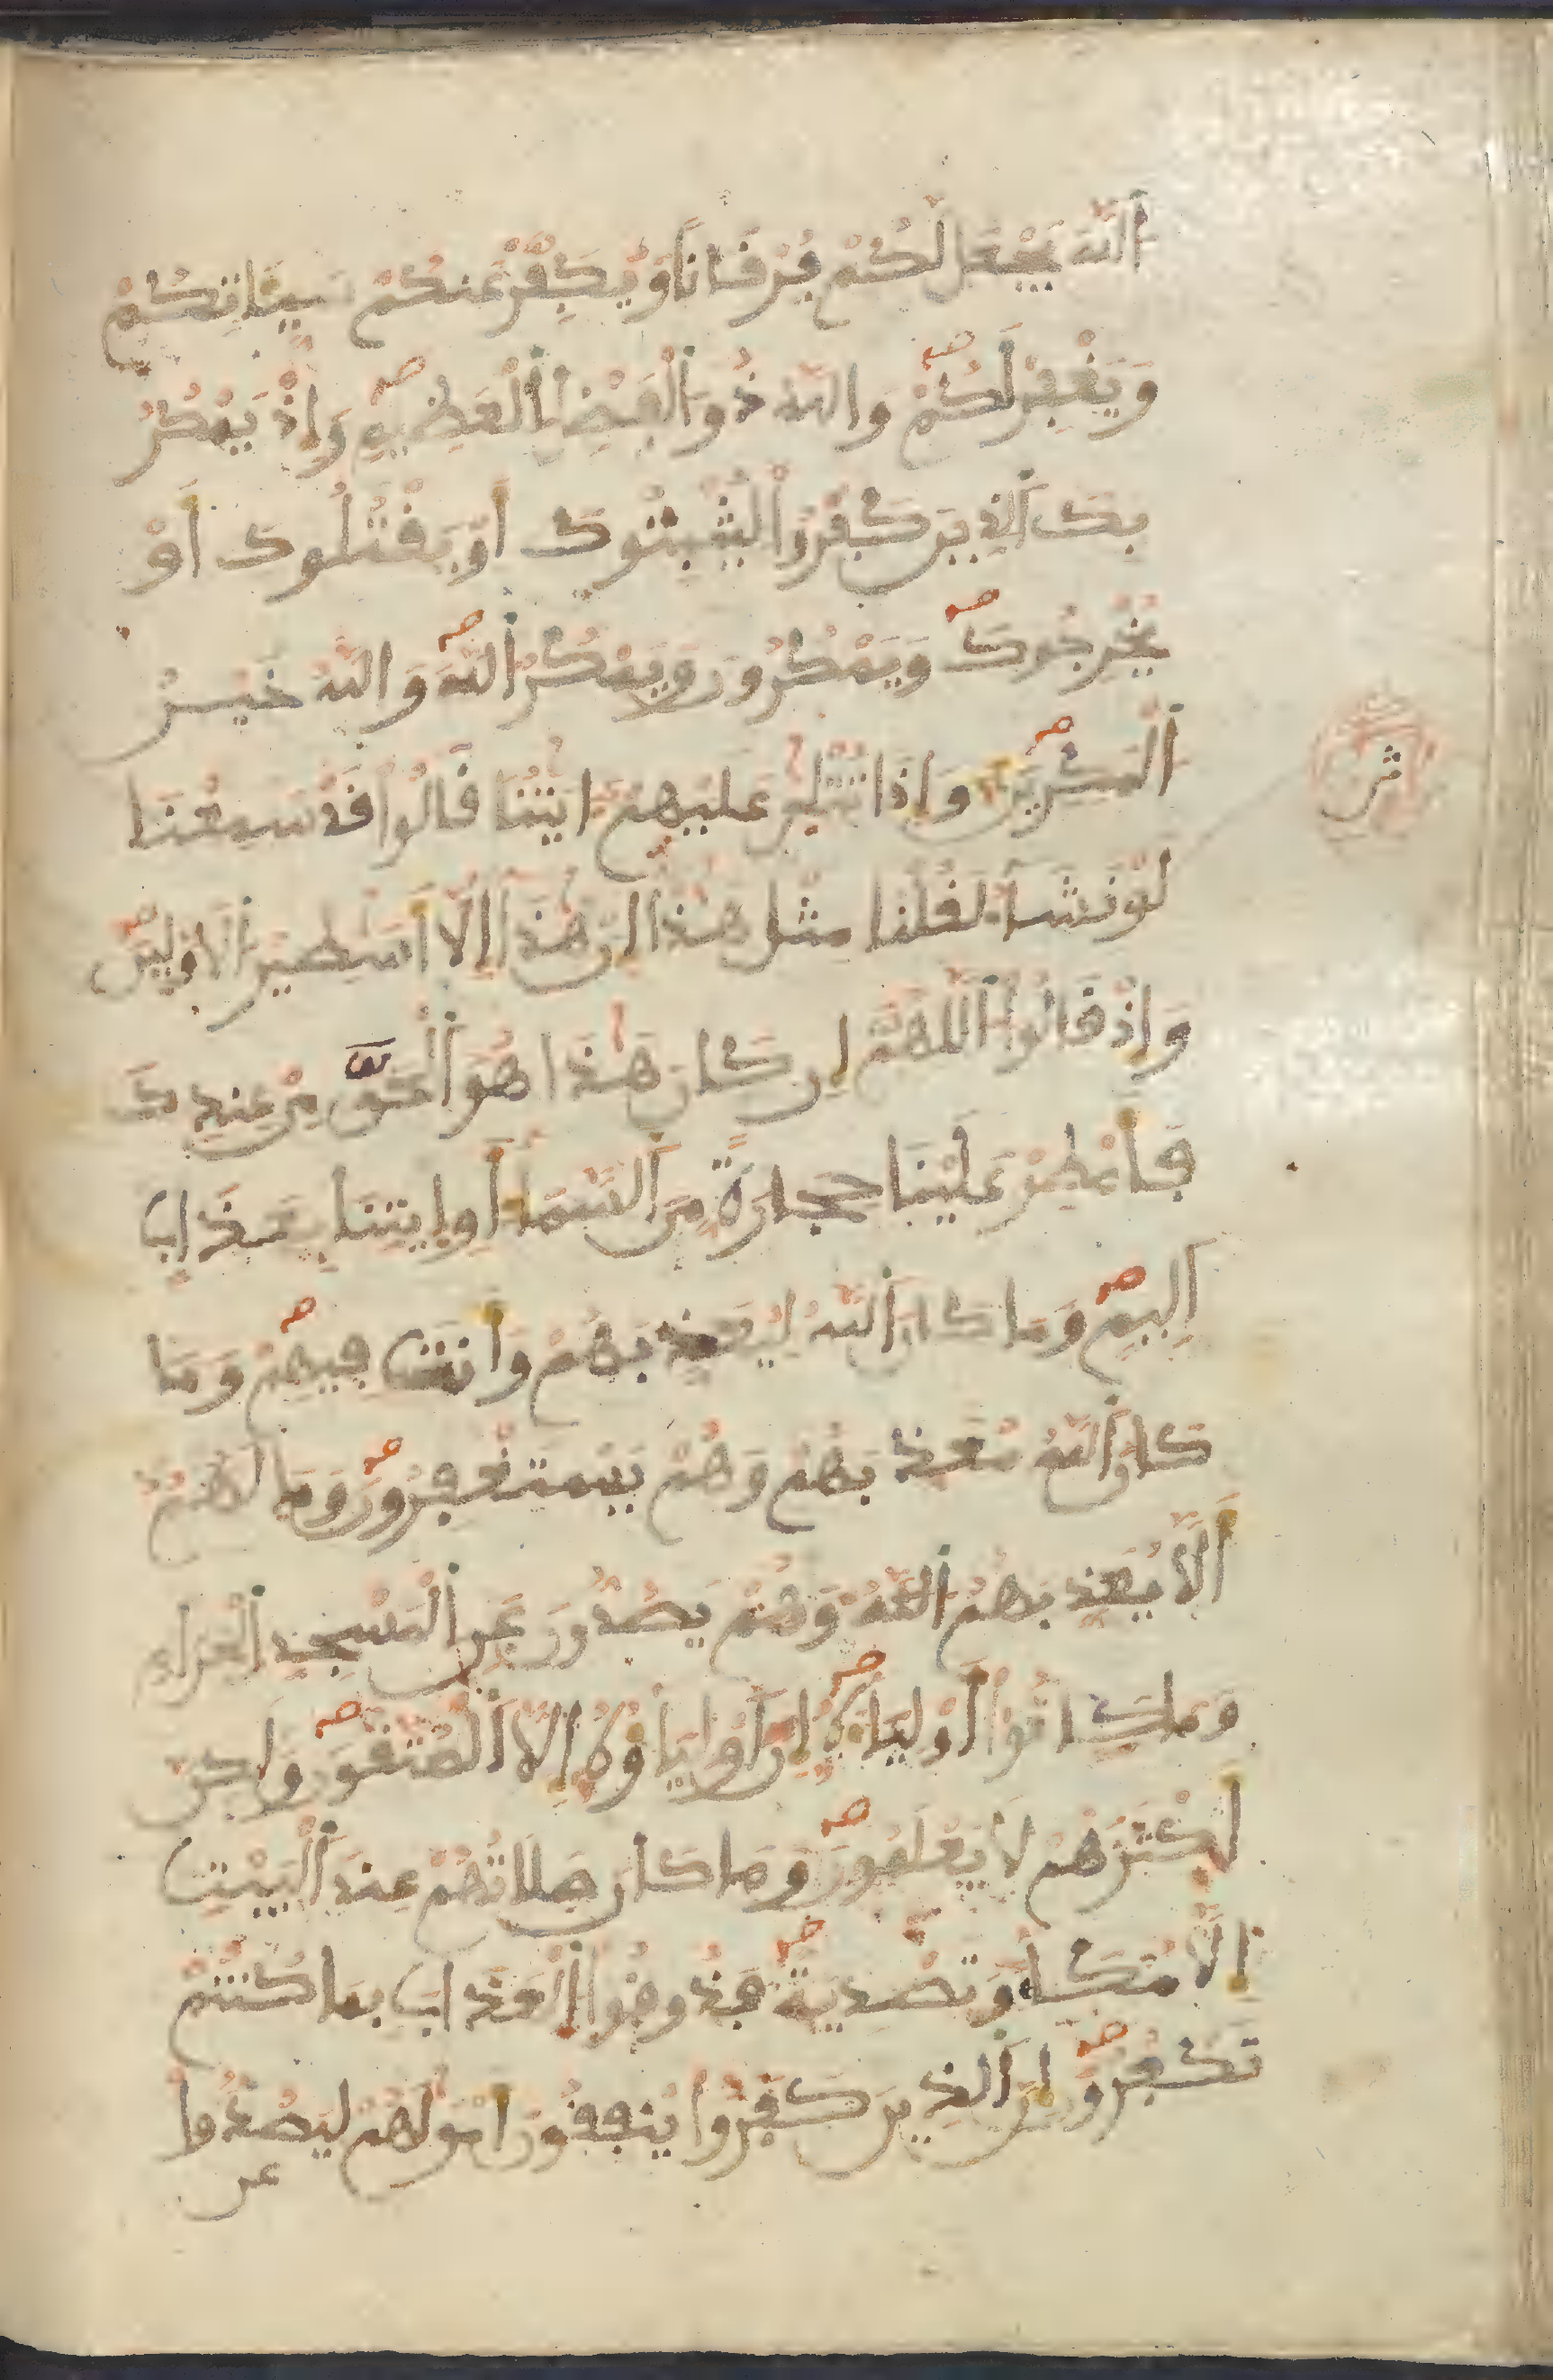 اَ۬للَّهَ يَجْعَل لَّكُمْ فُرْقَاناً وَيُكَفِّرْ عَنكُمْ سَيِّـَٔاتِكُمْ
وَيَغْفِرْ لَكُمْ وَاللَّهُ ذُو اَ۬لْفَضْلِ اِ۬لْعَظِيمِ وَإِذْ يَمْكُرُ
بِكَ اَ۬لذِينَ كَفَرُواْ لِيُثْبِتُوكَ أَوْ يَقْتُلُوكَ أَوْ
يُخْرِجُوكَ وَيَمْكُرُونَ وَيَمْكُرُ اُ۬للَّهُ وَاللَّهُ خَيْرُ
اُ۬لْمَٰكِرِينَ وَإِذَا تُتْلَىٰ عَلَيْهِمْ ءَايَٰتُنَا قَالُواْ قَدْ سَمِعْنَا
لَوْ نَشَآءُ لَقُلْنَا مِثْلَ هَٰذَا إِنْ هَٰذَآ إِلَّآ أَسَٰطِيرُ اُ۬لَاوَّلِينَ
وَإِذْ قَالُواْ اُ۬للَّهُمَّ إِن كَانَ هَٰذَا هُوَ اَ۬لْحَقَّ مِنْ عِندِكَ
فَأَمْطِرْ عَلَيْنَا حِجَارَةً مِّنَ اَ۬لسَّمَآءِ أَوِ اِيتِنَا بِعَذَابٍ
اَلِيمٍ وَمَا كَانَ اَ۬للَّهُ لِيُعَذِّبَهُمْ وَأَنتَ فِيهِمْ وَمَا
كَانَ اَ۬للَّهُ مُعَذِّبَهُمْ وَهُمْ يَسْتَغْفِرُونَ وَمَا لَهُمُۥ
أَلَّا يُعَذِّبَهُمُ اُ۬للَّهُ وَهُمْ يَصُدُّونَ عَنِ اِ۬لْمَسْجِدِ اِ۬لْحَرَامِ
وَمَا كَانُوٓاْ أَوْلِيَآءَهُۥٓ إِنْ أَوْلِيَآؤُهُۥٓ إِلَّا اَ۬لْمُتَّقُونَ وَلَٰكِنَّ
أَكْثَرَهُمْ لَا يَعْلَمُونَ وَمَا كَانَ صَلَاتُهُمْ عِندَ اَ۬لْبَيْتِ
إِلَّا مُكَآءً وَتَصْدِيَةً فَذُوقُواْ اُ۬لْعَذَابَ بِمَا كُنتُمْ
تَكْفُرُونَ إِنَّ اَ۬لذِينَ كَفَرُواْ يُنفِقُونَ أَمْوَٰلَهُمْ لِيَصُدُّواْ
عن
ثمن